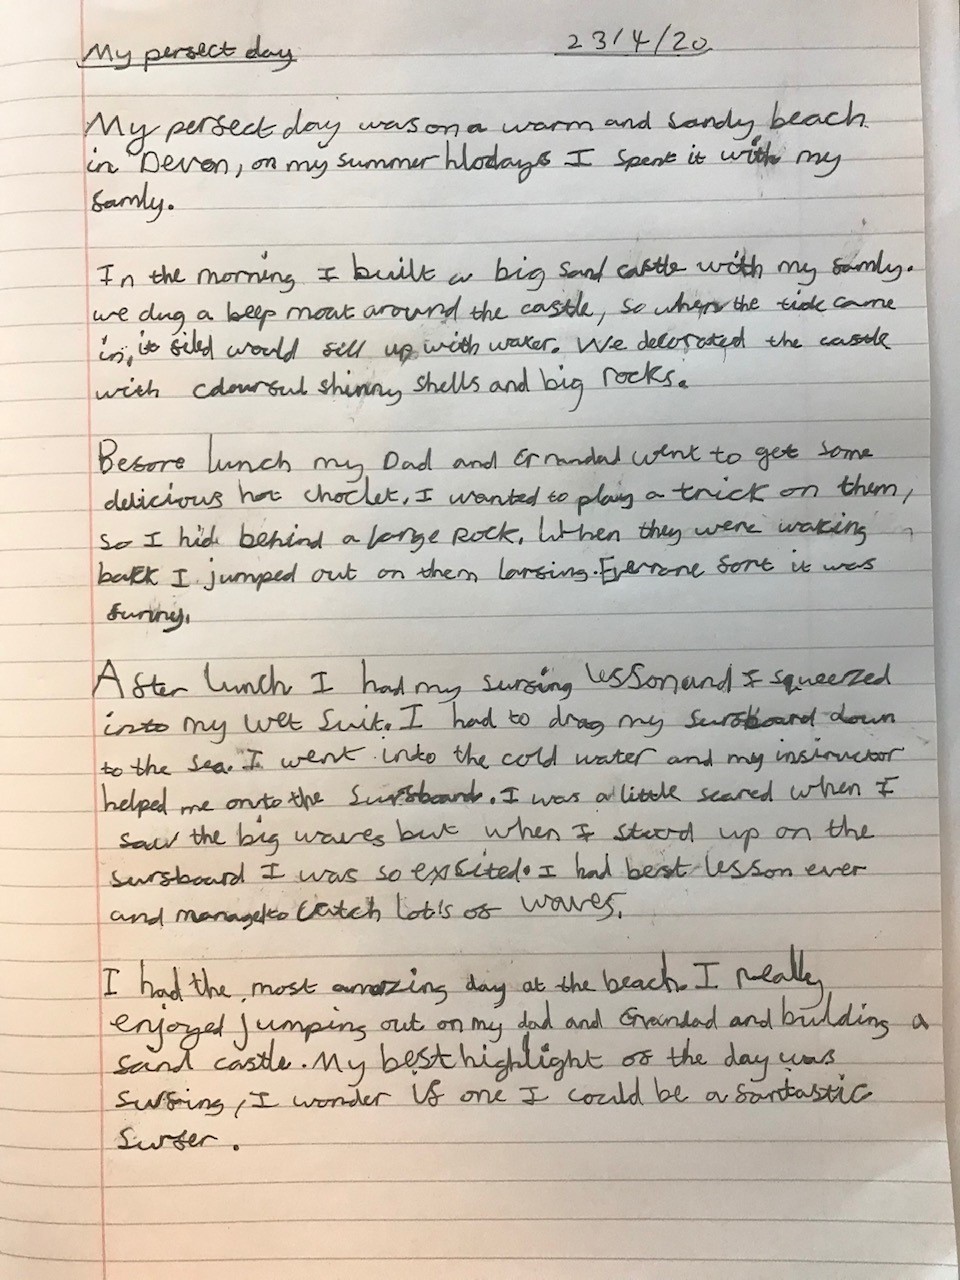 My perfect day 23/4/20
My perfect day was on a warm and sandy beach
in Devon, on my summer hlodays I spent it with my
famly.
In the morning I built a big sand castle with my famly.
we dug a beep moat around the castle, so when the tide came
in, it filed would fill up with water. We decorated the castle
with colourful shinny shells and big rocks.
Before lunch my Dad and Grandad went to get some
delicious hot choclet. I wanted to play a trick on them,
so I hid behind a large rock. When they were waking
back I jumped out on them larfing. Everrone fort it was
funny.
After lunch I had my surfing lesson and I squeezed
into my wet suit. I had to drag my surfboard down
to the sea. I went into the cold water and my instructor
helped me onto the surfboard. I was a little scared when I
saw the big waves but when I stood up on the
surfboard I was so exsited. I had best lesson ever
and managed to catch lot's of waves.
I had the most amazing day at the beach. I really
enjoyed jumping out on my dad and Grandad and bulding a
sand castle. My best highlight of the day was
surfing, I wonder if one I could be a fantastic
surfer.